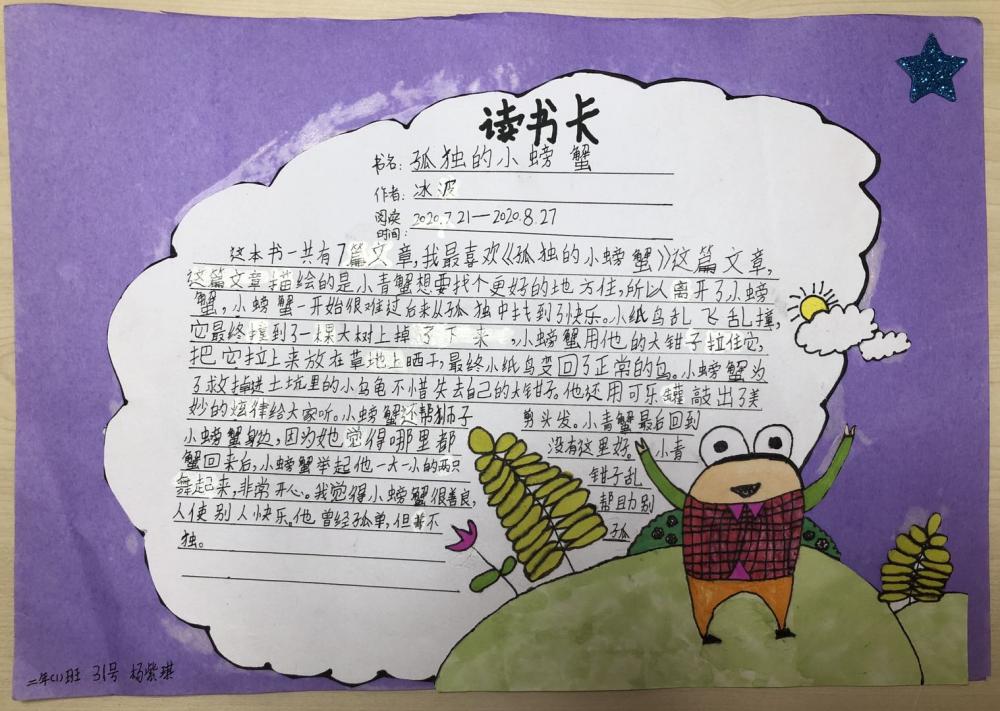 读书卡
书名：孤独的小螃蟹
作者：冰波
阅读时间：2020.7.21—2020.8.27
这本书一共有7篇文章，我最喜欢《孤独的小螃蟹》这篇文章，
这篇文章描绘的是小青蟹想要找个更好的地方住，所以离开了小螃
蟹，小螃蟹一开始很难过后来从孤独中找到了快乐。小纸鸟乱飞乱撞，
它最终撞到了一棵大树上掉了下来，小螃蟹用他的大钳子拉住它，
把它拉上来放在草地上晒干，最终小纸鸟变回了正常的鸟。小螃蟹为
了救掉进土坑里的小乌龟不惜失去自己的大钳子。他还用可乐罐敲出了美
妙的炫律给大家听。小螃蟹还帮狮子剪头发。小青蟹最后回到
小螃蟹身边，因为她觉得哪里都没有这里好。小青
蟹回来后，小螃蟹举起他一大一小的两只钳子乱
舞起来，非常开心。我觉得小螃蟹很善良，帮助别
人使别人快乐。他曾经孤单，但并不孤
独。
二年(1)班 31号 杨紫琪